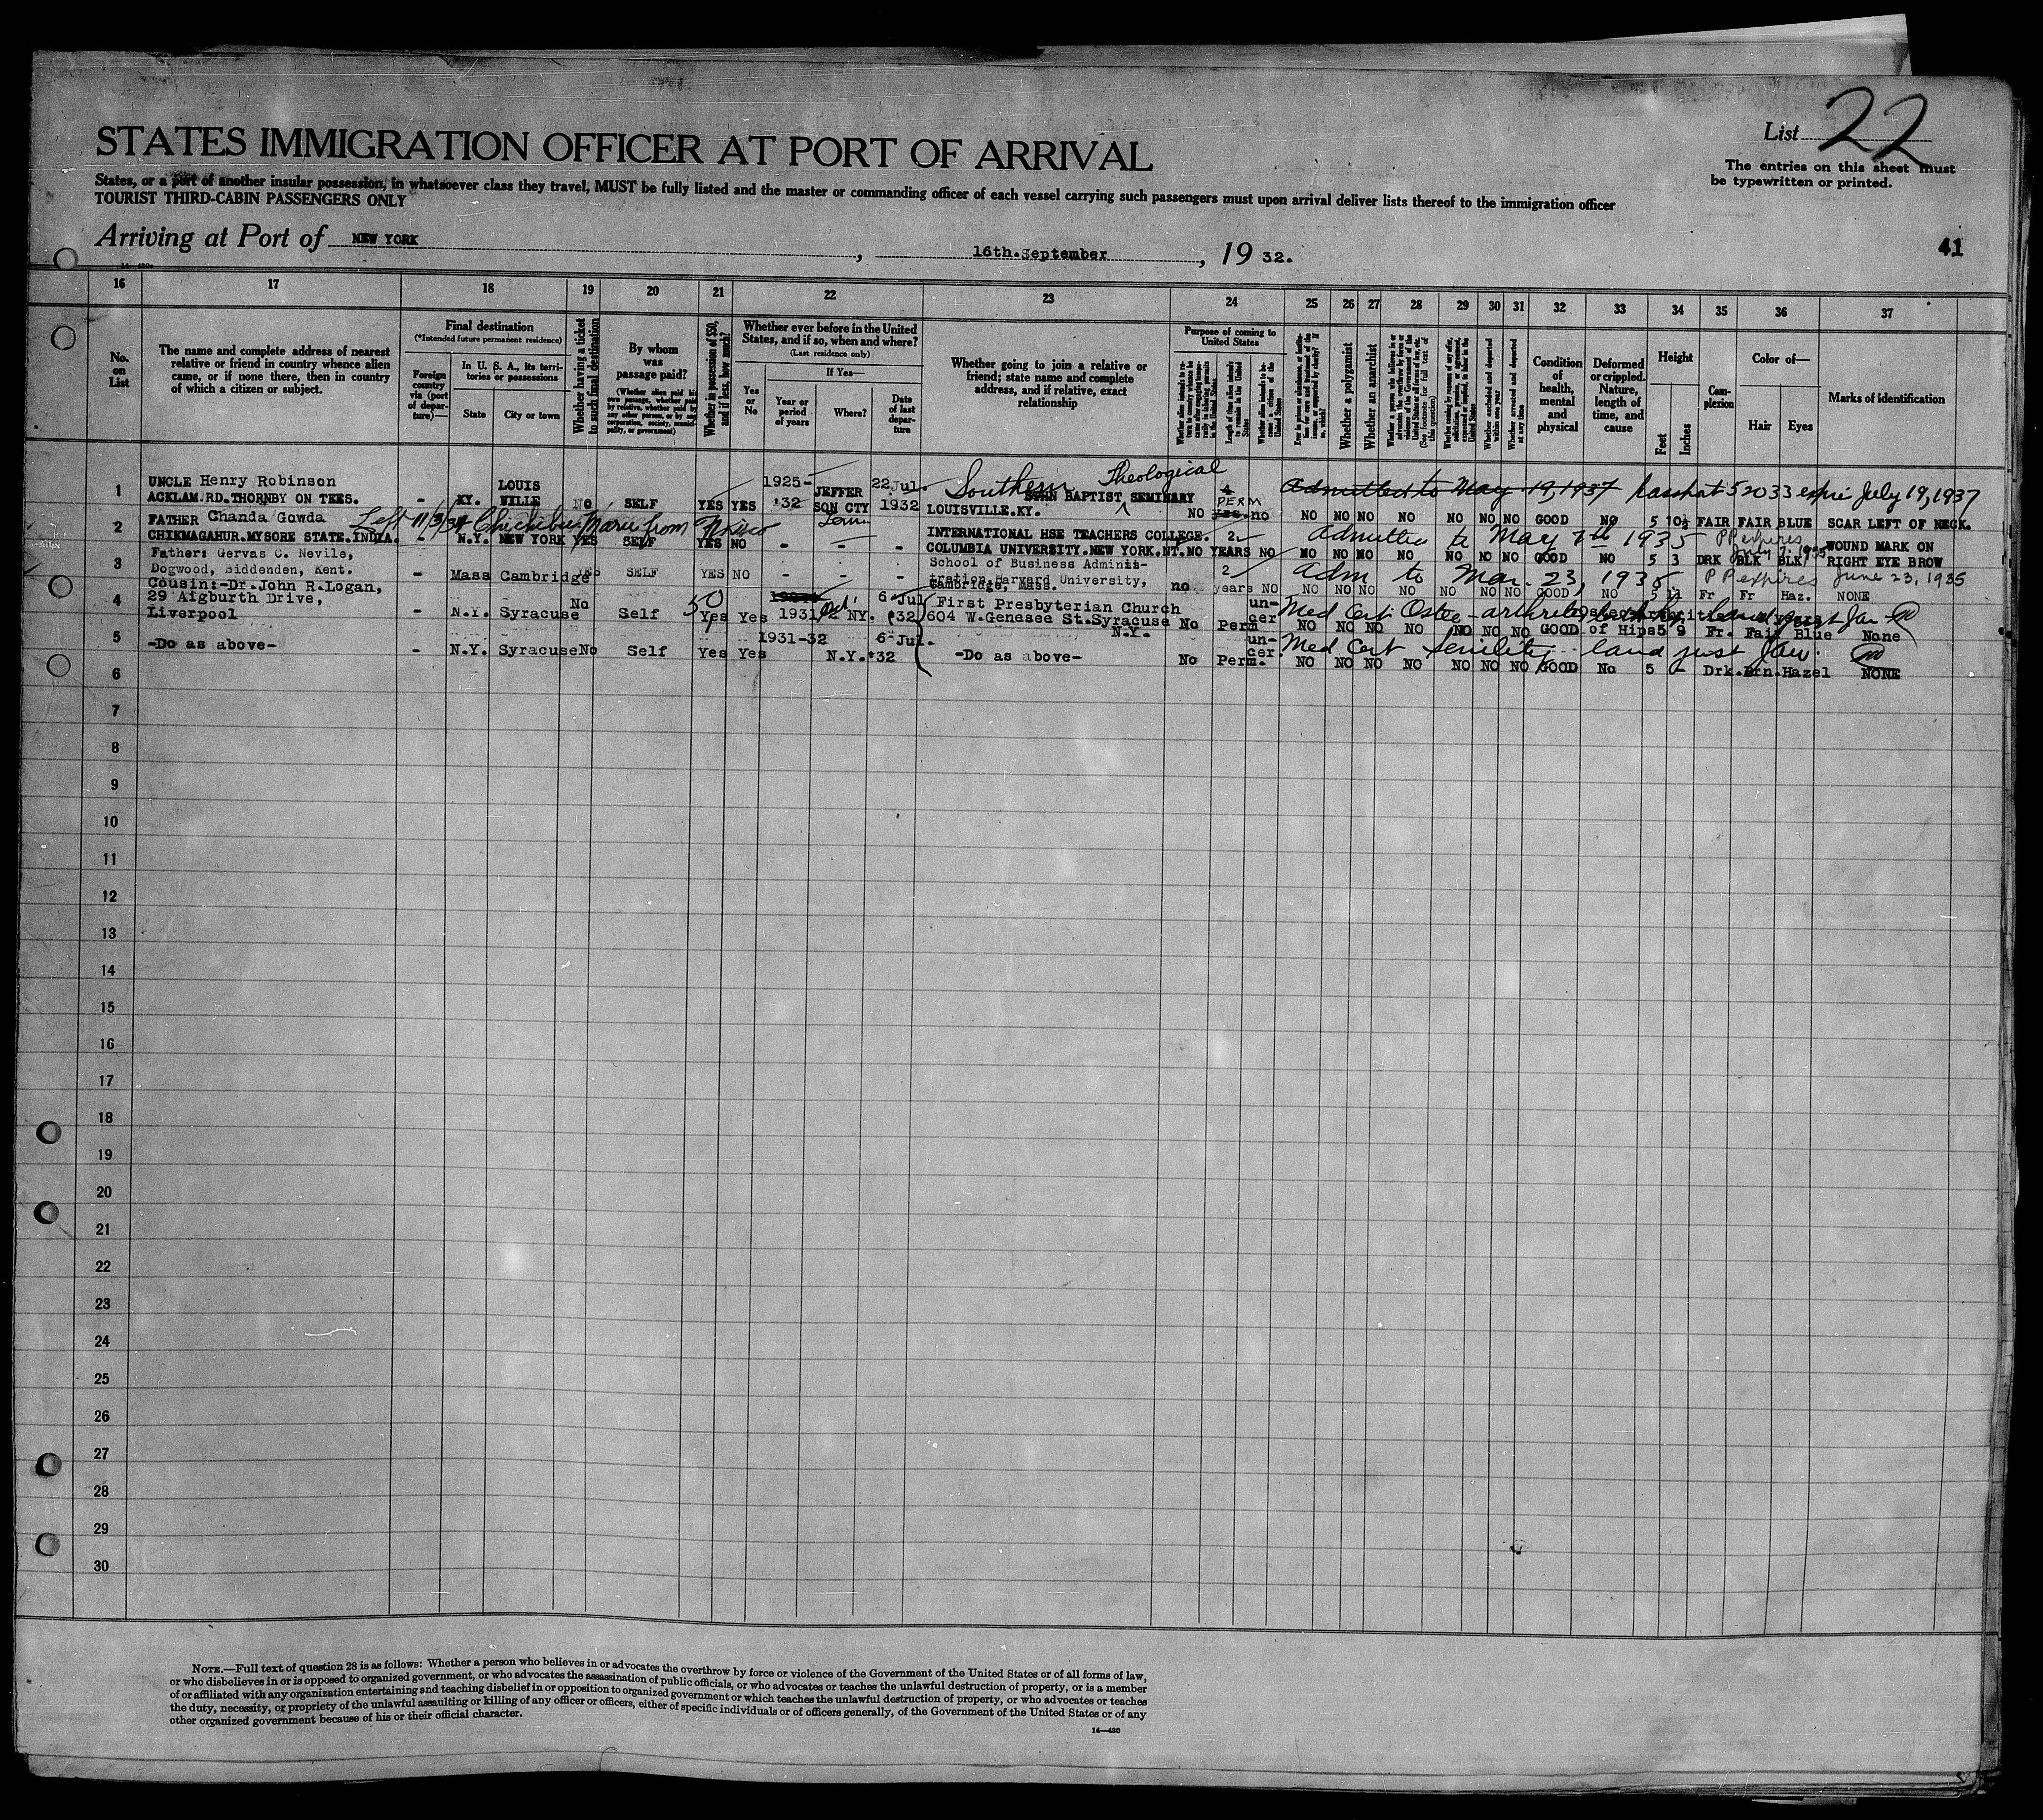 List 22
The entries on this sheet must
be typewritten or printed.
STATES IMMIGRATION OFFICER AT PORT OF ARRIVAL
States, or a port of another insular possession, in whatsoever class they travel, MUST be fully listed and the master or commanding officer of each vessel carrying such passengers must upon arrival deliver lists thereof to the immigration officer
TOURIST THIRD-CABIN PASSENGERS ONLY
Arriving at Port of NEW YORK, 16th.September, 19 32.
41
16 17 18 19 20 21 22 23 24 25 26 27 28 29 30 31 32 33 34 35 36 37
No.
on
List
The name and complete address of nearest
relative or friend in country whence alien
came, or if none there, then in country
of which a citizen or subject.
Final destination
(*Intended future permanent residence)
Foreign
country
via (port
of depar-
ture)—
In U. S. A., its terri-
tories or possessions
State
City or town
Whether having a ticket
to such final destination
By whom
was
passage paid?
(Whether alien paid his
own passage, whether paid
by relative, whether paid by
any other person, or by any
corporation, society, munici-
pality, or government)
Whether in possession of $50,
and if less, how much?
Whether ever before in the United
States, and if so, when and where?
(Last residence only)
Yes
or
No
If Yes—
Year or
period
of years
Where?
Date
of last
depar-
ture
Whether going to join a relative or
friend; state name and complete
address, and if relative, exact
relationship
Purpose of coming to
United States
Length of time alien intends
to remain in the United
States
Whether alien intends to be-
come a citizen of the
United States
Whether a polygamist
Whether an anarchist
(See footnote for full text of
this question)
Whether excluded and deported
within one year
Whether arrested and deported
at any time
Condition
of
health,
mental
and
physical
Deformed
or crippled.
Nature,
length of
time, and
cause
Height
Feet
Inches
Com-
plexion
Color of—
Hair
Eyes
Marks of identification
Southern Theological Admitted to May 19, 1937 Passport 52033 expire July 19, 1937
UNCLE Henry Robinson LOUIS 1925- JEFFER 22 Jul.
1 ACKLAM.RD.THORNBY ON TEES. - KY. VILLE No SELF YES YES '32 SON CTY 1932 BAPTIST SEMINARY
LOUISVILLE.KY. NO PERM no NO NO NO NO NO NO NO GOOD NO 5 10½ FAIR FAIR BLUE SCAR LEFT OF NECK.
Left 11/3/34 Chichibu Maru from Admitted to May 7th 1935 PP expires July 7, 1935
2 FATHER Chanda Gowda
CHIKMAGAHUR.MYSORE STATE.INDIA. - N.Y. NEW YORK YES SELF YES NO - - -
INTERNATIONAL HSE TEACHERS COLLEGE. 2
COLUMBIA UNIVERSITY.NEW YORK. NO YEARS NO NO NO NO NO NO NO NO GOOD NO 5 3 DRK BLK BLK WOUND MARK ON
RIGHT EYE BROW
Adm to Mar. 23, 1935 PP expires June 23, 1935
3 Father: Gervas C. Nevile,
Dogwood, Biddenden, Kent. - Mass Cambridge YES SELF YES NO - - -
School of Business Adminis-
tration, Harvard University,
Cambridge, Mass. no 2 years NO NO NO NO NO NO NO NO GOOD NO 5 11 Fr Fr Haz. NONE
4 Cousin:-Dr.John R.Logan,
29 Aigburth Drive,
Liverpool - N.Y. Syracuse No Self 50 Yes Yes 1931/32 NY. 6 Jul '32
First Presbyterian Church
604 W.Genesee St.Syracuse
N.Y. No Perm un-
cer NO NO NO NO NO NO NO GOOD of Hips 5 9 Fr. Fair Blue None
Med Cert Osteo-arthritis
5 -Do as above- - N.Y. Syracuse No Self Yes Yes 1931-32 N.Y. 6 Jul. '32
-Do as above- No Perm. un-
cer. NO NO NO NO NO NO NO GOOD No 5 - Drk. Brn. Hazel NONE
Med Cert Senility
6
7
8
9
10
11
12
13
14
15
16
17
18
19
20
21
22
23
24
25
26
27
28
29
30
NOTE.—Full text of question 28 is as follows: Whether a person who believes in or advocates the overthrow by force or violence of the Government of the United States or of all forms of law,
or who disbelieves in or is opposed to organized government, or who advocates the assassination of public officials, or who advocates or teaches the unlawful destruction of property, or is a member
of or affiliated with any organization entertaining and teaching disbelief in or opposition to organized government or which teaches the unlawful destruction of property, or who advocates or teaches
the duty, necessity, or propriety of the unlawful assaulting or killing of any officer or officers, either of specific individuals or of officers generally, of the Government of the United States or of any
other organized government because of his or their official character.
14—430